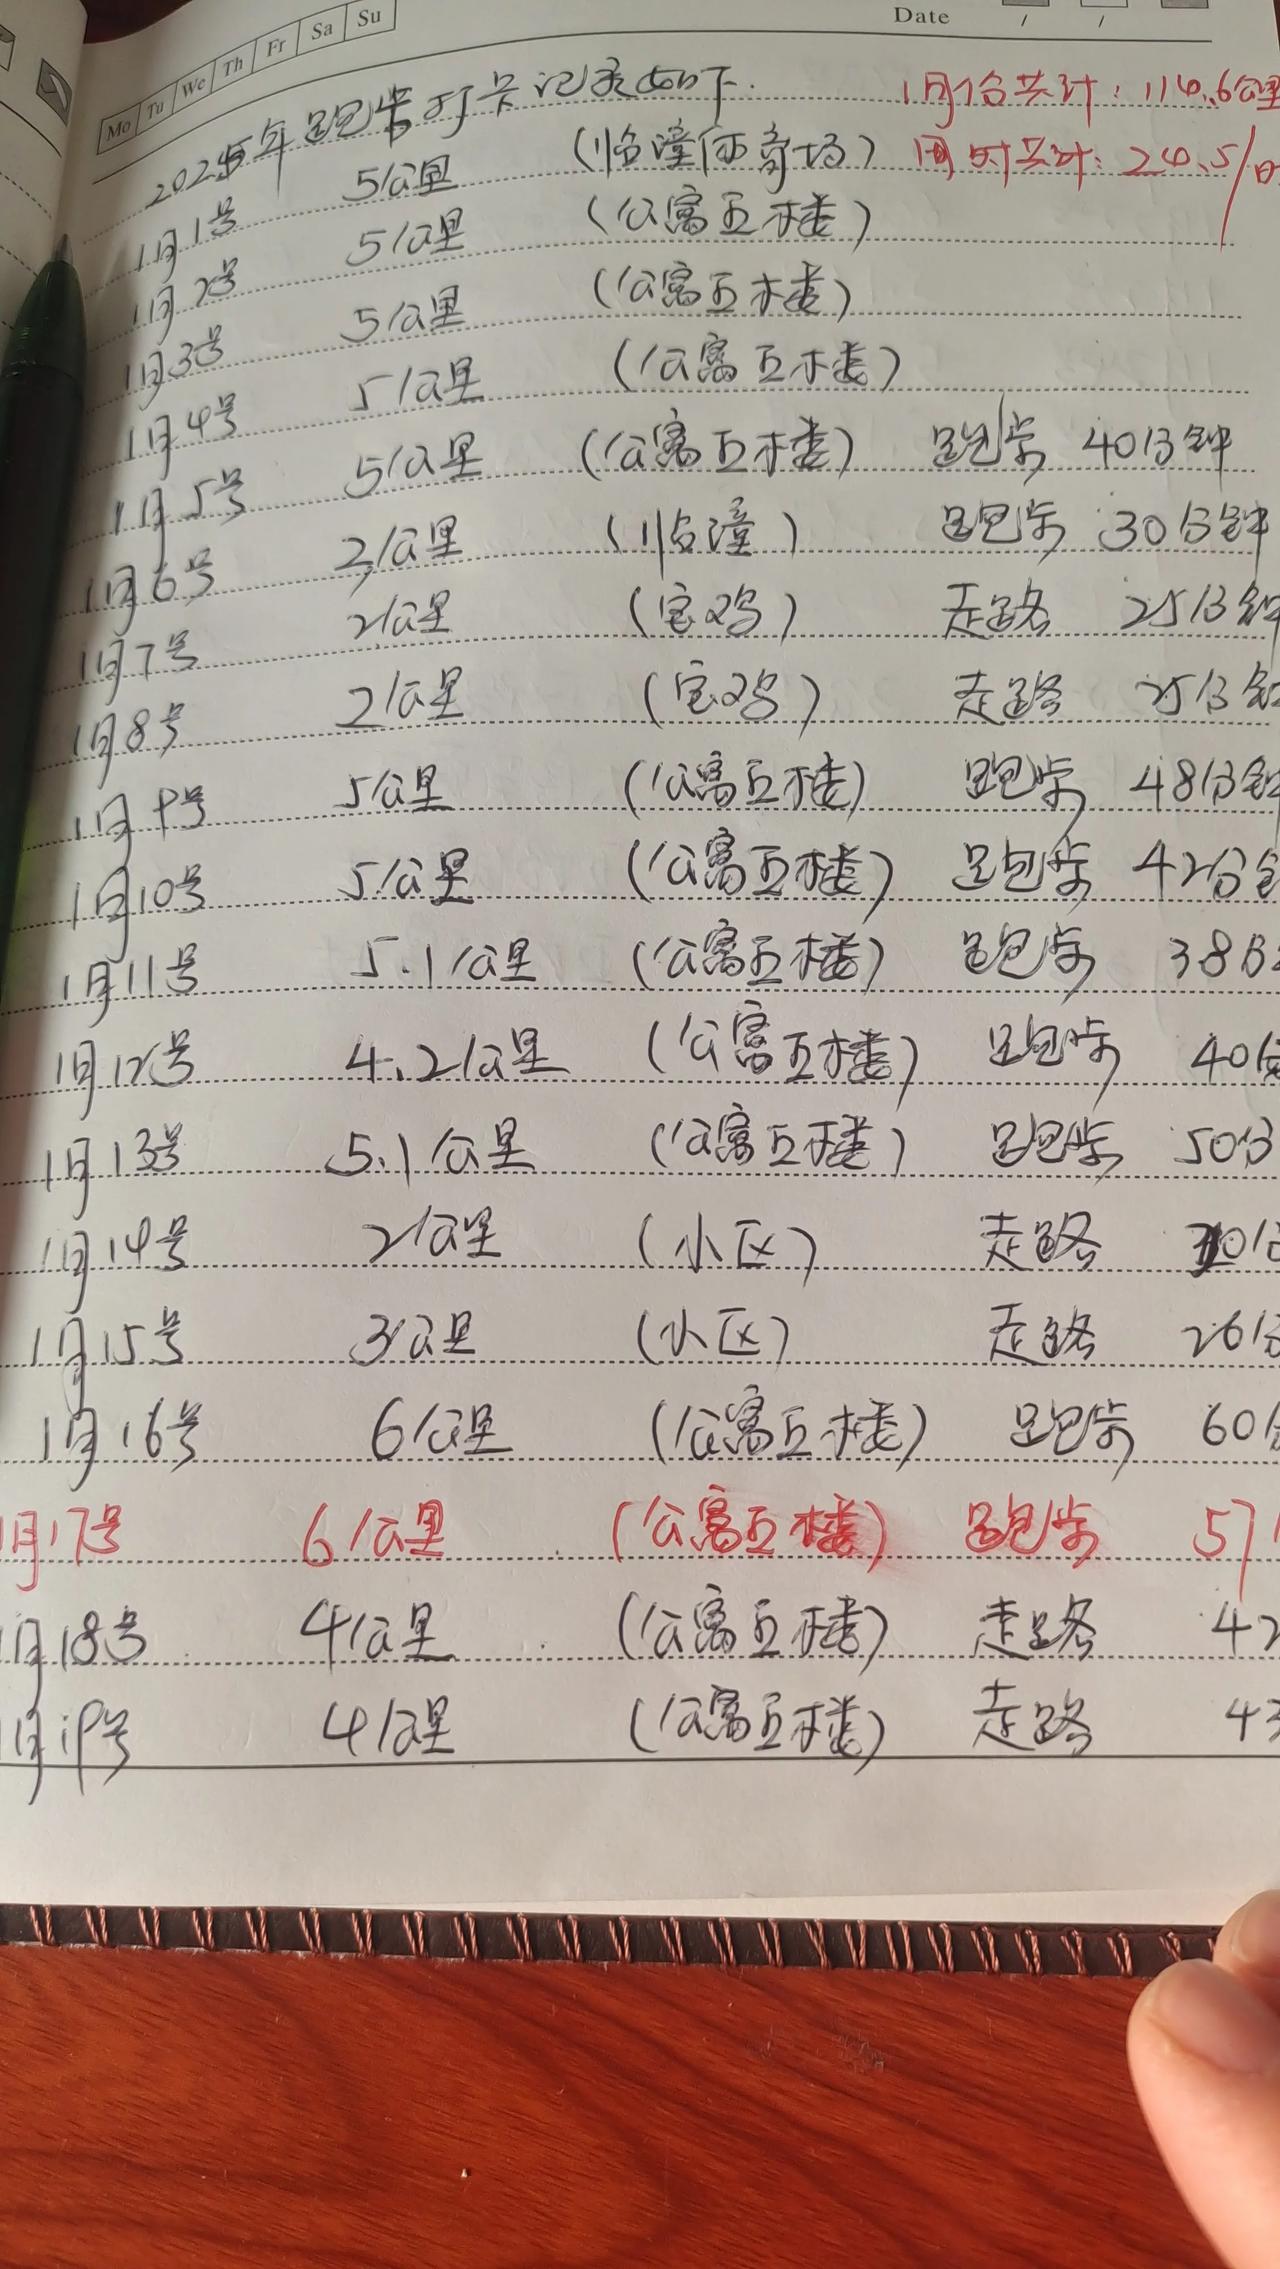 Mo Tu We Th Fr Sa Su
Date / /
2025年跑步打卡记录如下.
1月份共计:114.6公里
用时共计:24.5/
1月1号 5公里 (临潼体育场)
1月2号 5公里 (公寓五楼)
1月3号 5公里 (公寓五楼)
1月4号 5公里 (公寓五楼)
1月5号 5公里 (公寓五楼) 跑步 40分钟
1月6号 2公里 (临潼) 跑步 30分钟
1月7号 2公里 (宝鸡) 走路 25分钟
1月8号 2公里 (宝鸡) 走路 25分钟
1月9号 5公里 (公寓五楼) 跑步 48分钟
1月10号 5公里 (公寓五楼) 跑步 42分钟
1月11号 5.1公里 (公寓五楼) 跑步 38分
1月12号 4.2公里 (公寓五楼) 跑步 40分
1月13号 5.1公里 (公寓五楼) 跑步 50分
1月14号 2公里 (小区) 走路
1月15号 3公里 (小区) 走路 26分
1月16号 6公里 (公寓五楼) 跑步 60分
1月17号 6公里 (公寓五楼) 跑步 57
1月18号 4公里 (公寓五楼) 走路 42
1月19号 4公里 (公寓五楼) 走路 43